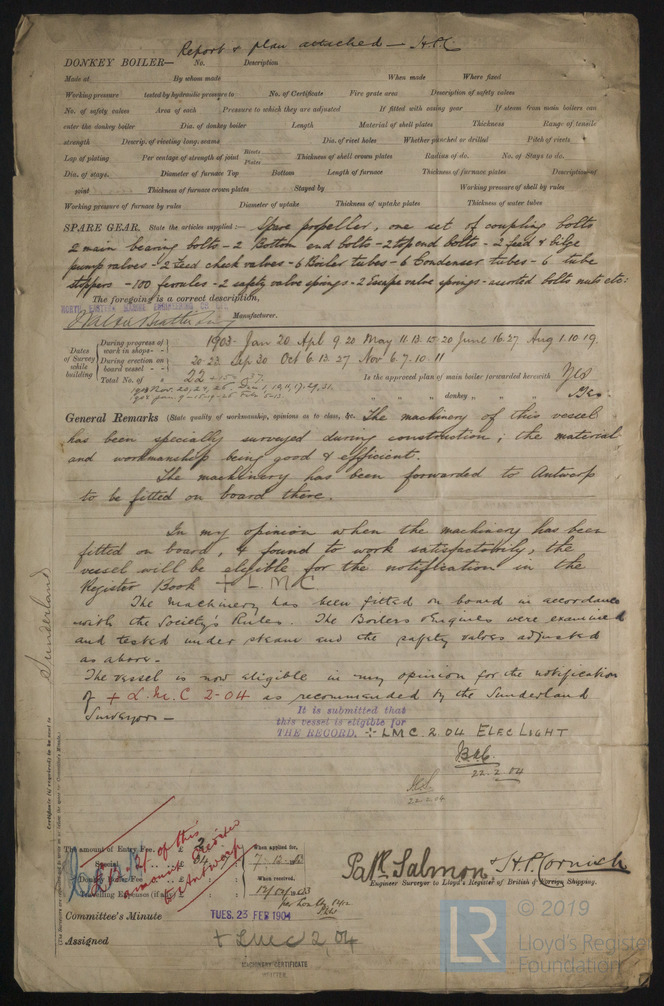 Report & plan attached — H.P.C
DONKEY BOILER— No. Description
Made at By whom made When made Where fixed
Working pressure tested by hydraulic pressure to No. of Certificate Fire grate area Description of safety valves
No. of safety valves Area of each Pressure to which they are adjusted If fitted with easing gear If steam from main boilers can
enter the donkey boiler Dia. of donkey boiler Length Material of shell plates Thickness Range of tensile
strength Descrip. of riveting long. seams Dia. of rivet holes Whether punched or drilled Pitch of rivets
Lap of plating Per centage of strength of joint Rivets Plates Thickness of shell crown plates Radius of do. No. of Stays to do.
Dia. of stays. Diameter of furnace Top Bottom Length of furnace Thickness of furnace plates Description of
joint Thickness of furnace crown plates Stayed by Working pressure of shell by rules
Working pressure of furnace by rules Diameter of uptake Thickness of uptake plates Thickness of water tubes
SPARE GEAR. State the articles supplied:— Spare propeller, one set of coupling bolts
2 main bearing bolts - 2 Bottom end bolts - 2 top end bolts - 2 feed & bilge
pump valves - 2 Feed check valves - 6 Boiler tubes - 6 Condenser tubes - 6 tube
stoppers - 100 ferrules - 2 safety valve springs - 2 Escape valve springs - assorted bolts nuts etc:
The foregoing is a correct description,
NORTH EASTERN MARINE ENGINEERING CO
Manufacturer.
Dates of Survey while building
During progress of work in shops - - 1903 - Jan 20 Apl 9. 20 May 11. 13. 15. 20 June 16. 27 Aug 1. 10. 19.
During erection on board vessel - - 20. 23 Sep 30 Oct 6. 13. 27 Nov 6. 7. 10. 11
Total No. of 22 Is the approved plan of main boiler forwarded herewith Yes
" " " donkey " " " Yes
General Remarks (State quality of workmanship, opinions as to class, &c. The machinery of this vessel
has been specially surveyed during construction; the material
and workmanship being good & efficient.
The machinery has been forwarded to Antwerp
to be fitted on board there.
In my opinion when the machinery has been
fitted on board, & found to work satisfactorily, the
vessel will be eligible for the notification in the
Register Book + L M C
The Machinery has been fitted on board in accordance
with the Society's Rules. The Boilers Engines were examined
and tested under steam and the safety valves adjusted
as above.
The vessel is now eligible in my opinion for the notification
of + L.M.C 2-04 as recommended by the Sunderland
Surveyors —
It is submitted that
this vessel is eligible for
THE RECORD. + LMC 2.04 ELEC LIGHT
22.2.04
Sunderland
Certificate (if required) to be sent to
The amount of Entry Fee. . £ 2
Special
Donkey Boiler Fee
Travelling Expenses (if any) £
of this
amount credited
to Antwerp
When applied for,
When received,
P. A. K. Salmon & H.P. Cornish
Engineer Surveyor to Lloyd's Register of British & Foreign Shipping.
Committee's Minute TUES. 23 FEB 1904
Assigned + LMC 2,04
MACHINERY CERTIFICATE
WRITTEN
LR
© 2019
Lloyd's Register
Foundation